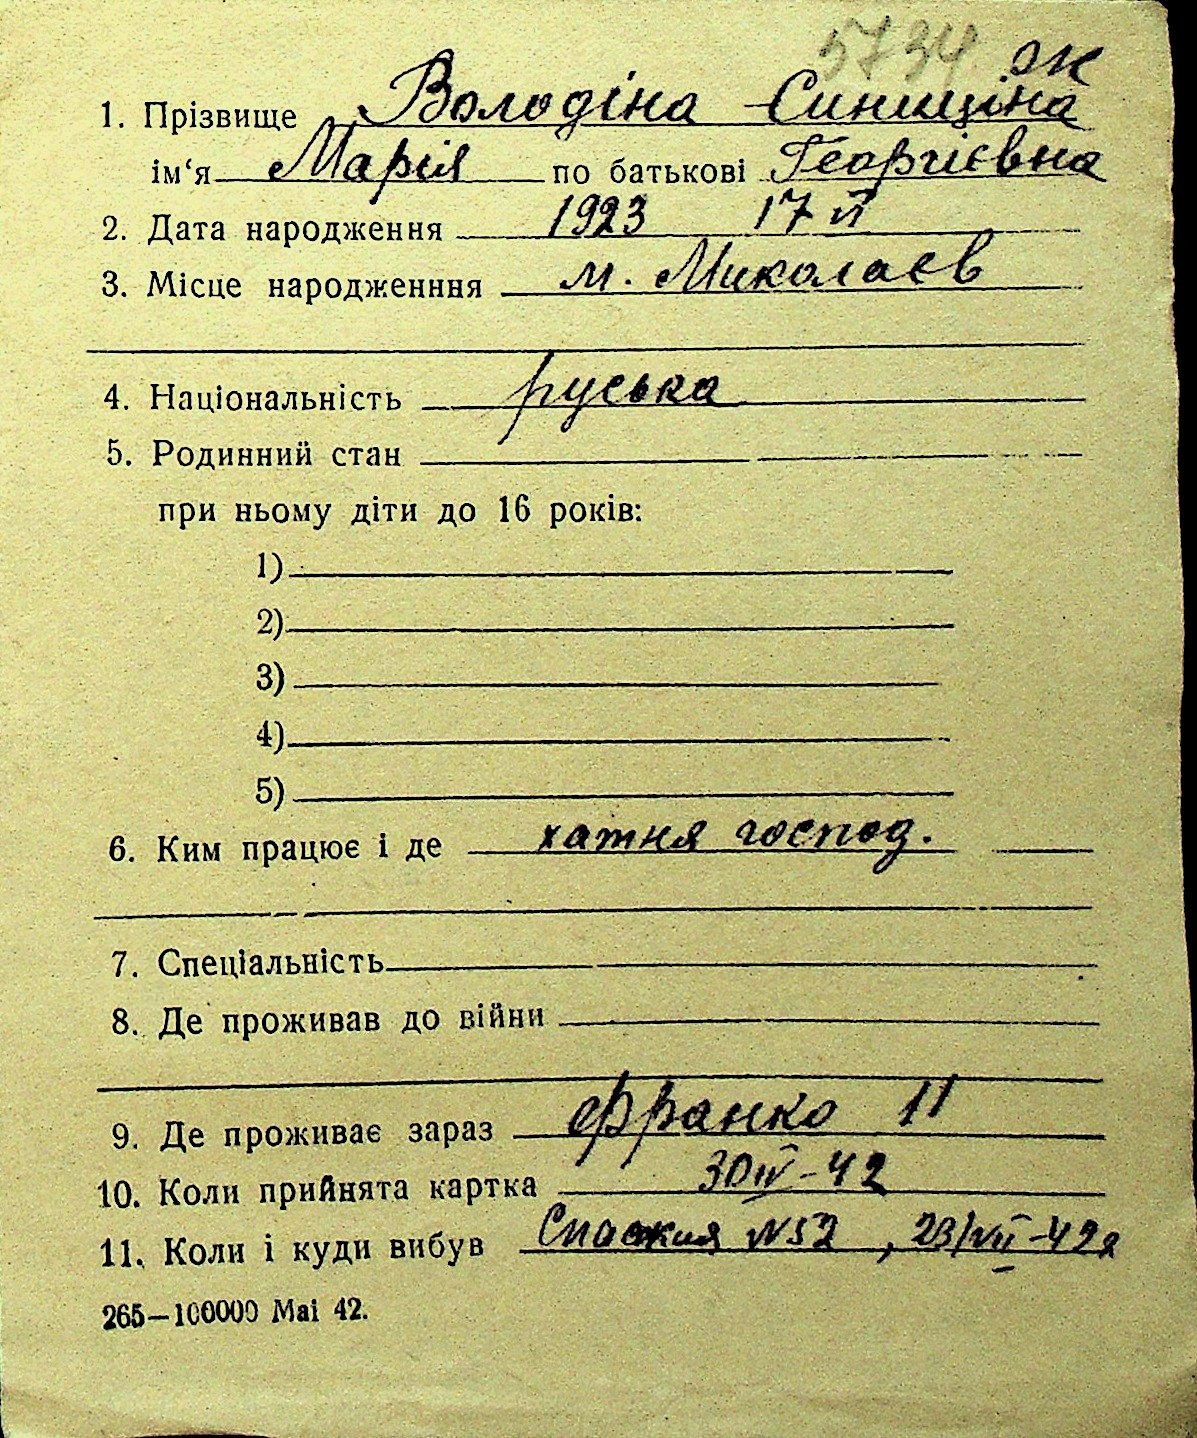 5734 ж
1. Прізвище Володіна -Синиціна
ім‘я Марія по батькові Георгієвна
2. Дата народження 1923 17 VI
3. Місце народженння м. Миколаєв
4. Національність руська
5. Родинний стан
при ньому діти до 16 років:
1)
2)
3)
4)
5)
6. Ким працює і де хатня господ.
7. Спеціальність
8. Де проживав до війни
9. Де проживає зараз Франко 11
10. Коли прийнята картка 30 IV-42
11. Коли і куди вибув N52, 23/VII-42г
265—100000 Mai 42.